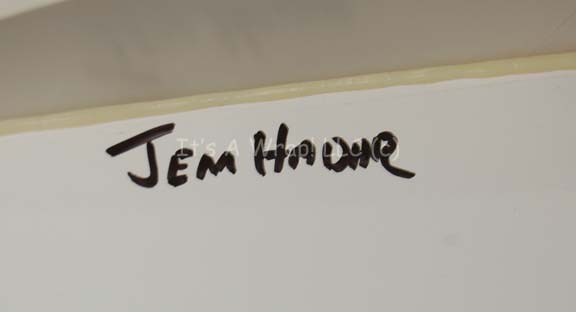 JEM HADAR
It's A Wrap! LLC (c)